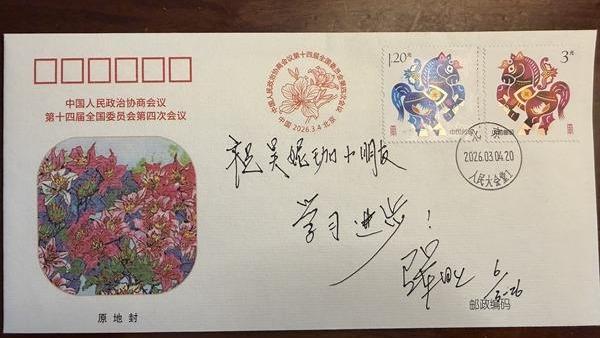 中国人民政治协商会议
第十四届全国委员会第四次会议
中国人民政治协商会议第十四届全国委员会第四次会议
中国 2026.3.4 北京
1.20元
中国邮政
3元
中国邮政
北京
2026.03.04.20
人民大会堂1
祝吴妮珈小朋友
学习进步！
6/3-26
原地封
邮政编码